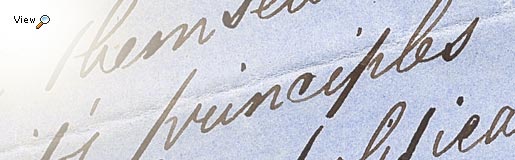 View
themsel
its principles